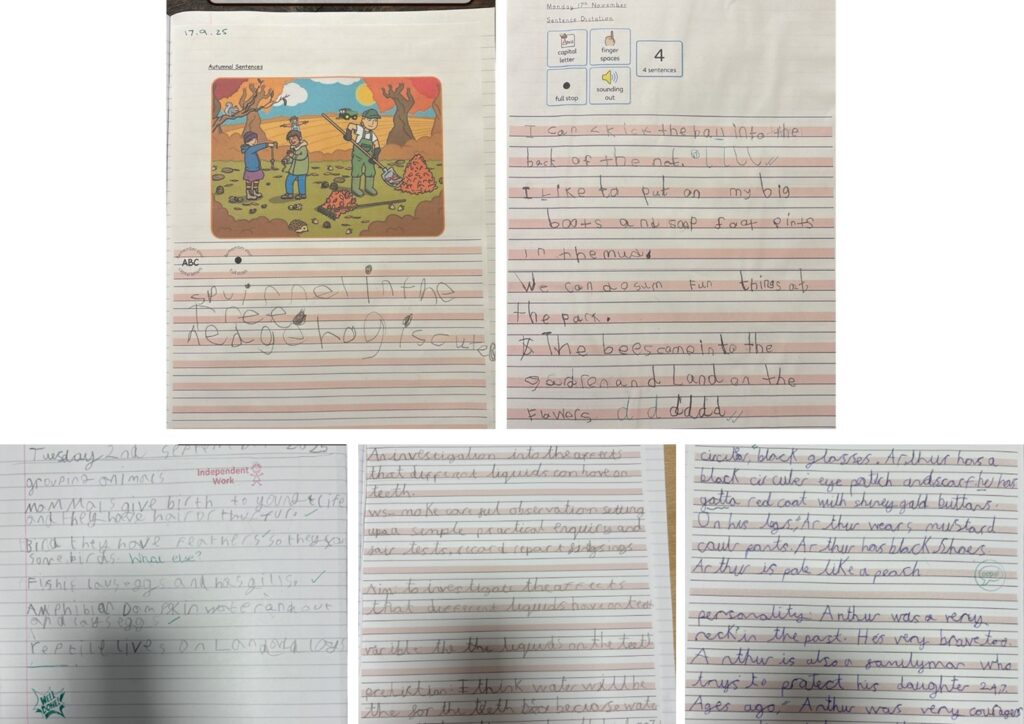 17.9.25
Autumnal Sentences
ABC
squirrel in the
Tree.
hedgehog is cute
Monday 17th November
Sentence Dictation
capital letter
finger spaces
4
4 sentences
full stop
sounding out
I can kick the ball into the
back of the net.
I Like to put on my big
boots and foot pints
in the mud.
We can do sum fun things at
the park.
The bees came into the
and Land on the
Flowers d d d d d d
Tuesday 2nd September 2025
Independent Work
grouping animals
mammals give birth to young life
and they have hair or fur. ✓
Bird they have feathers
some birds. What else?
eggs and has gills. ✓
Amphibian in water and out
and lays eggs
reptile lives on Land and lays
WELL DONE!
An investigation into the affects
that different liquids can have on
teeth.
make careful observation setting
up a simple practical enquiry and
fair tests, record report
Aim to investigate the affects
that different liquids have on
the the liquids on the teeth
prediction I think water will be
the for the teeth because
circular, black glasses. Arthur has a
black circuler eye patch and scarf he has
gotta red coat with shiney gold buttons.
On his legs, Arthur wears mustard
coulr pants. Arthur has black shoes
Arthur is pale like a peach
personality. Arthur was a very
in the past. Hes very brave too.
Arthur is also a familyman who
trys to protect his daughter 24/7.
Ages ago, Arthur was very